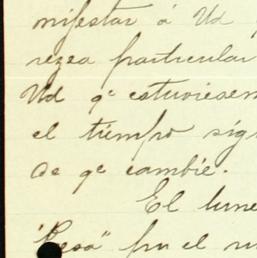 mifestar á Ud
rezca particular
Ud qe estuviesen
el tiempo sig
de qe cambie.
El lune
"Resa" fué el